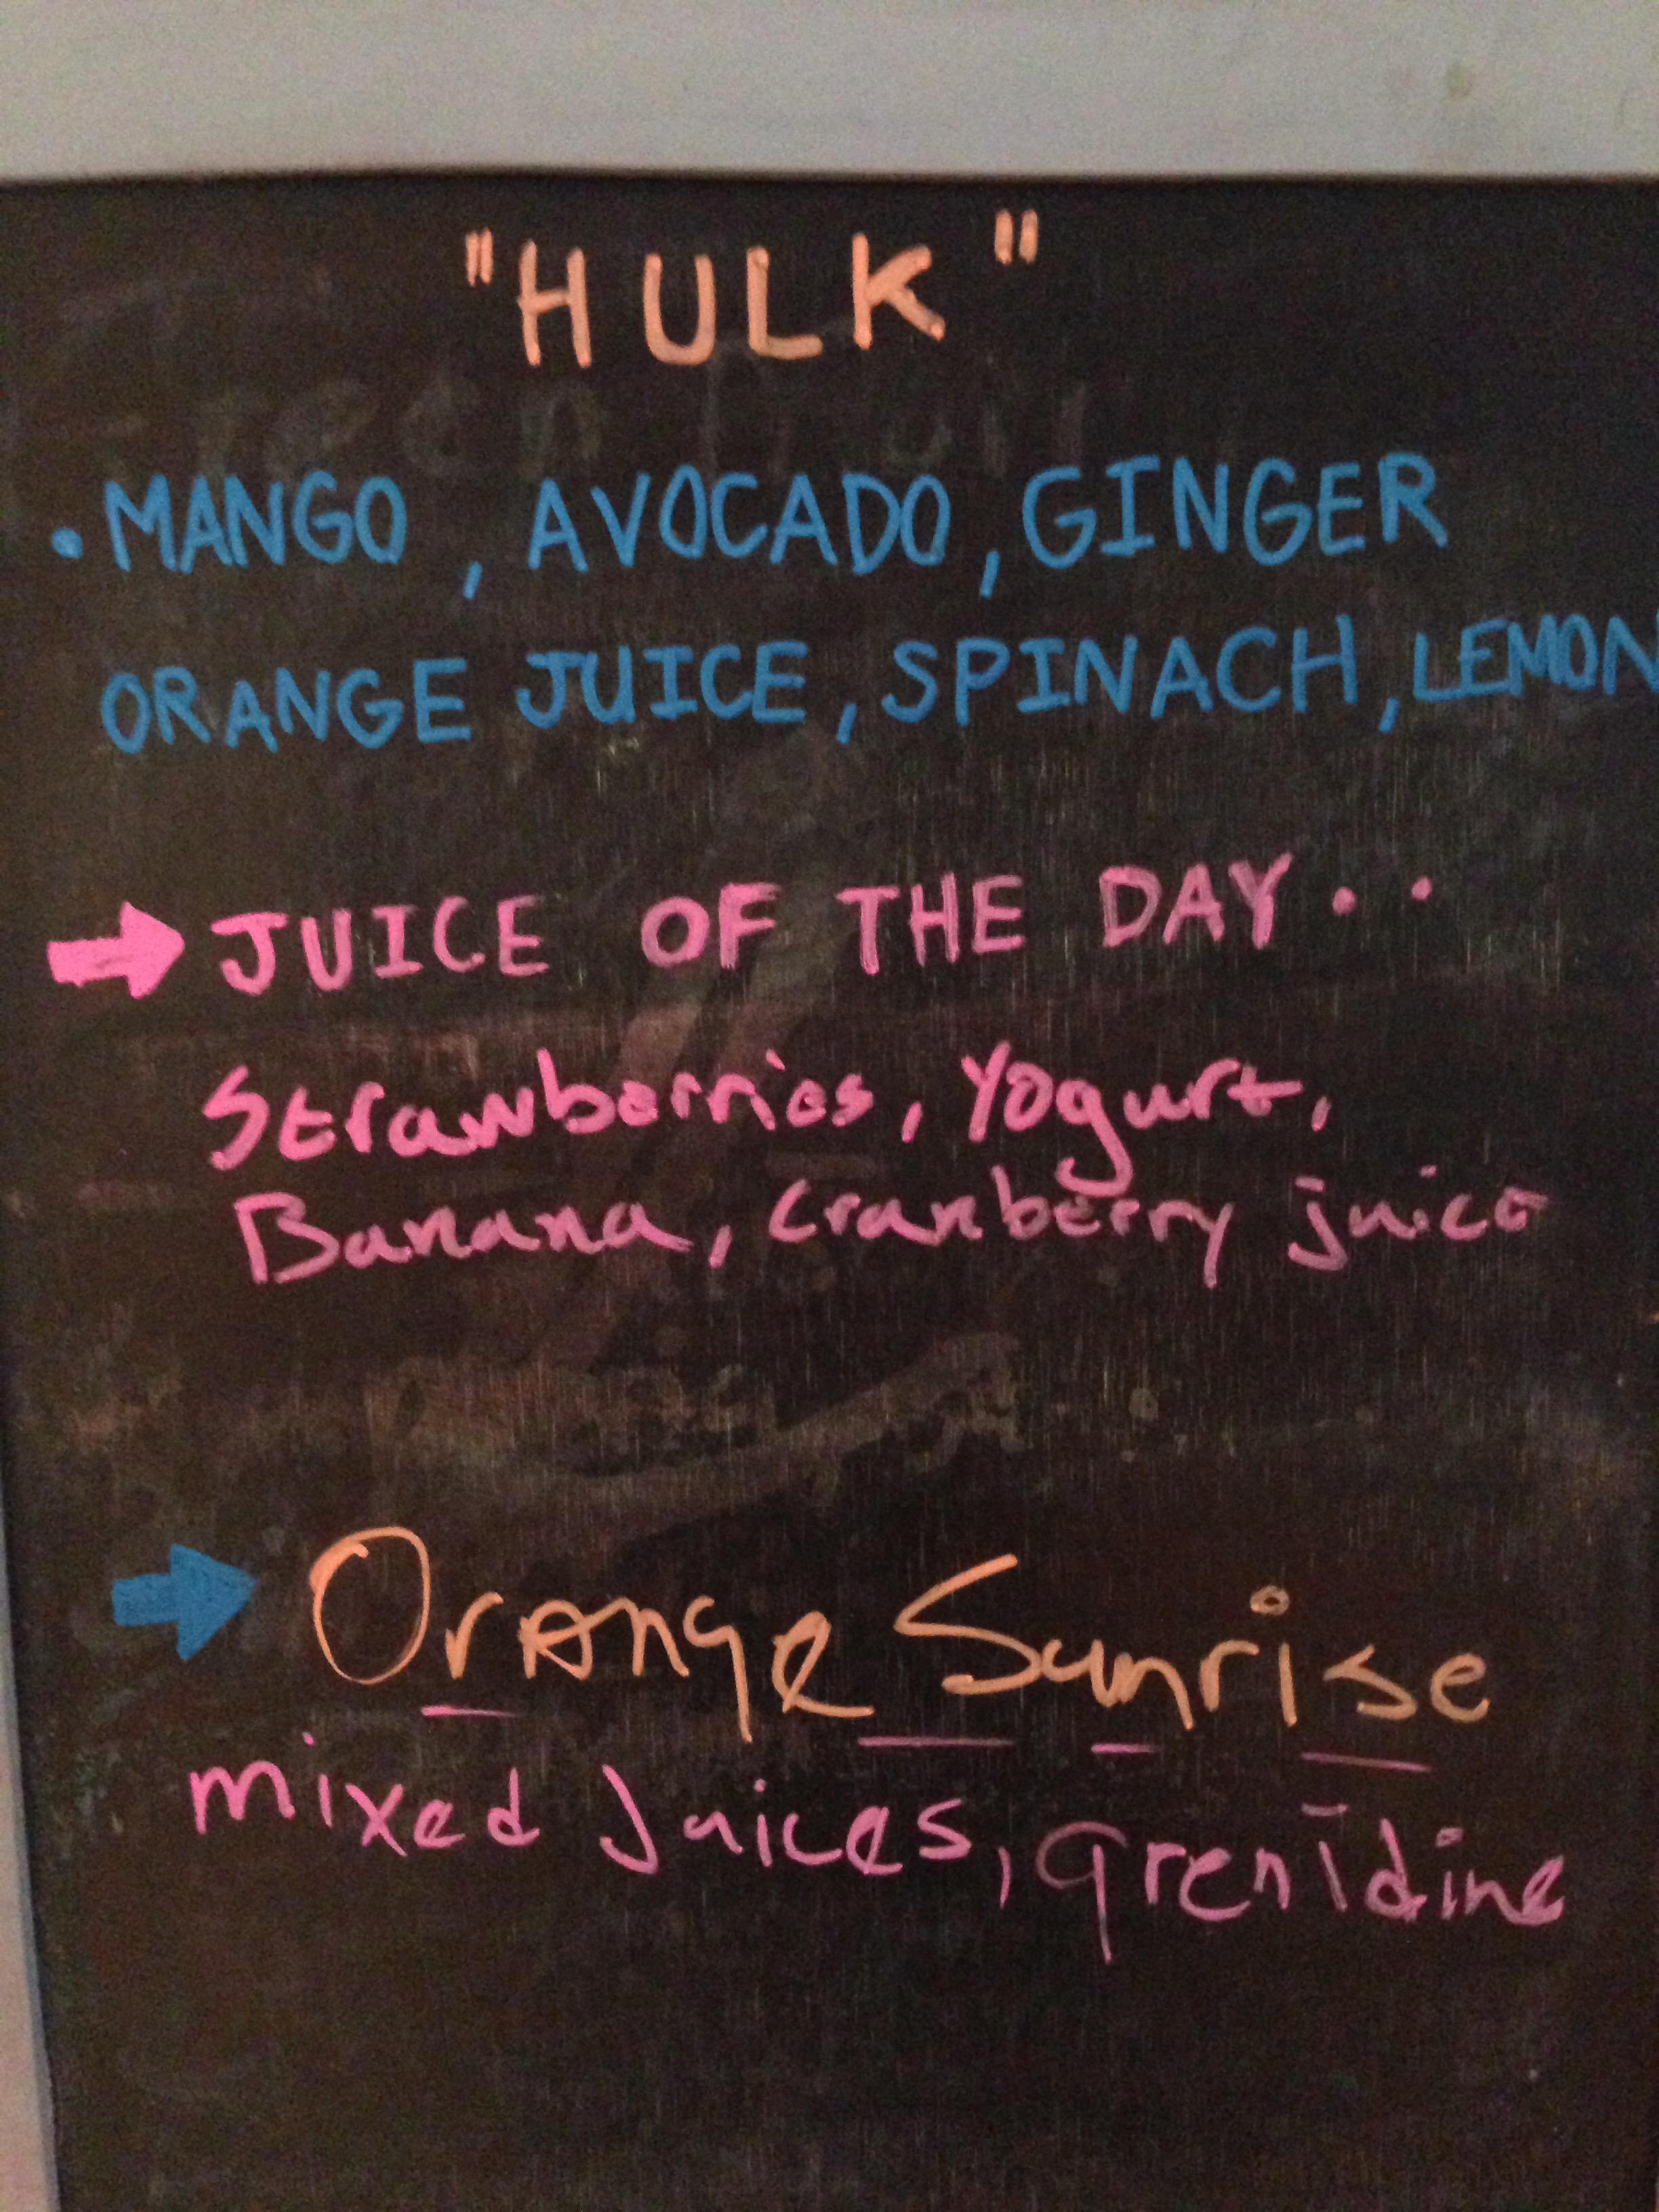 "HULK"
• MANGO, AVOCADO, GINGER
ORANGE JUICE, SPINACH, LEMON
JUICE OF THE DAY..
Strawberries, Yogurt,
Banana, cranberry juice
Orange Sunrise
mixed Juices, grenidine